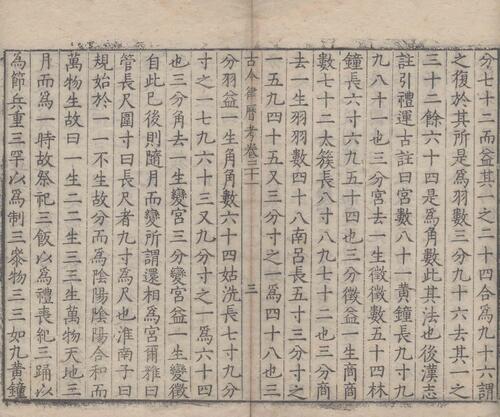 分七十二而益其一之二十四合為九十六謂
之復於其所是為羽數三分九十六去其一之
三十二餘六十四是為角數此其法也後漢志
註引禮運古註曰宮數八十一黃鐘長九寸九
九八十一也三分宮去一生徵徵數五十四林
鐘長六寸六九五十四也三分徵益一生商商
數七十二太簇長八寸八九七十二也三分商
去一生羽羽數四十八南呂長五寸三分寸之
一五九四十五又三分寸之一為四十八也三
古今律曆考卷三十
三
分羽益一生角角數六十四姑洗長七寸九分
寸之一七九六十三又九分寸之一為六十四
也三分角去一生變宮三分變宮益一生變徵
自此已後則隨月而變所謂還相為宮爾雅曰
管長尺圍寸曰長尺者九寸為尺也淮南子曰
規始於一一不生故分而為陰陽陰陽合和而
萬物生故曰一生二二生三三生萬物天地三
月而為一時故祭祀三飯以為禮喪紀三踊以
為節兵重三罕以為制三參物三三如九黃鐘